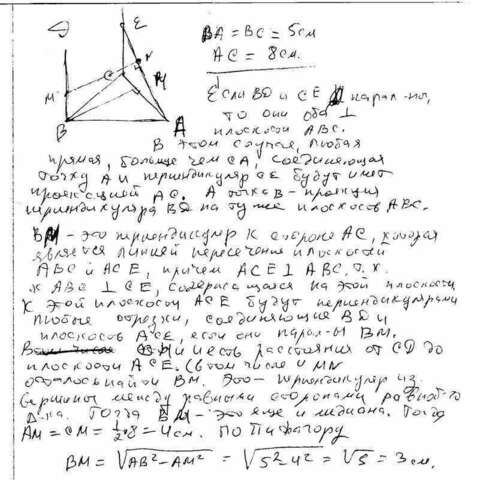 Д E
BA = BC = 5см
AC = 8см.
N
C
M
B A
Если BD и CE парал-ны,
то они оба ⊥
плоскости ABC.
В этом случае, любая
прямая, больше чем CA, соединяющая
точку A и перпендикуляр CE будут имет
проекцией AC. А точка B - проекция
перпендикуляра BD на ту же плоскость ABC.
BM - это перпендикуляр к стороне AC, которая
является линией пересечения плоскости
ABC и ACE, причем ACE ⊥ ABC, т.к.
ABC ⊥ CE, содержащаяся на этой плоскости
К этой плоскости ACE будут перпендикулярами
любые отрезки, соединяющие BD и
плоскость ACE, если они парал-ы BM.
и есть расстояния от CD до
плоскости ACE. (В том числе и MN
BM. Это - перпендикуляр из
вершины между равными сторонами равноб-го
Δ-ка. Тогда BM - это еще и медиана. Тогда
AM = CM = ½·8 = 4см. По Пифагору
BM = √AB² - AM² = √5² 4² = √ = 3см.